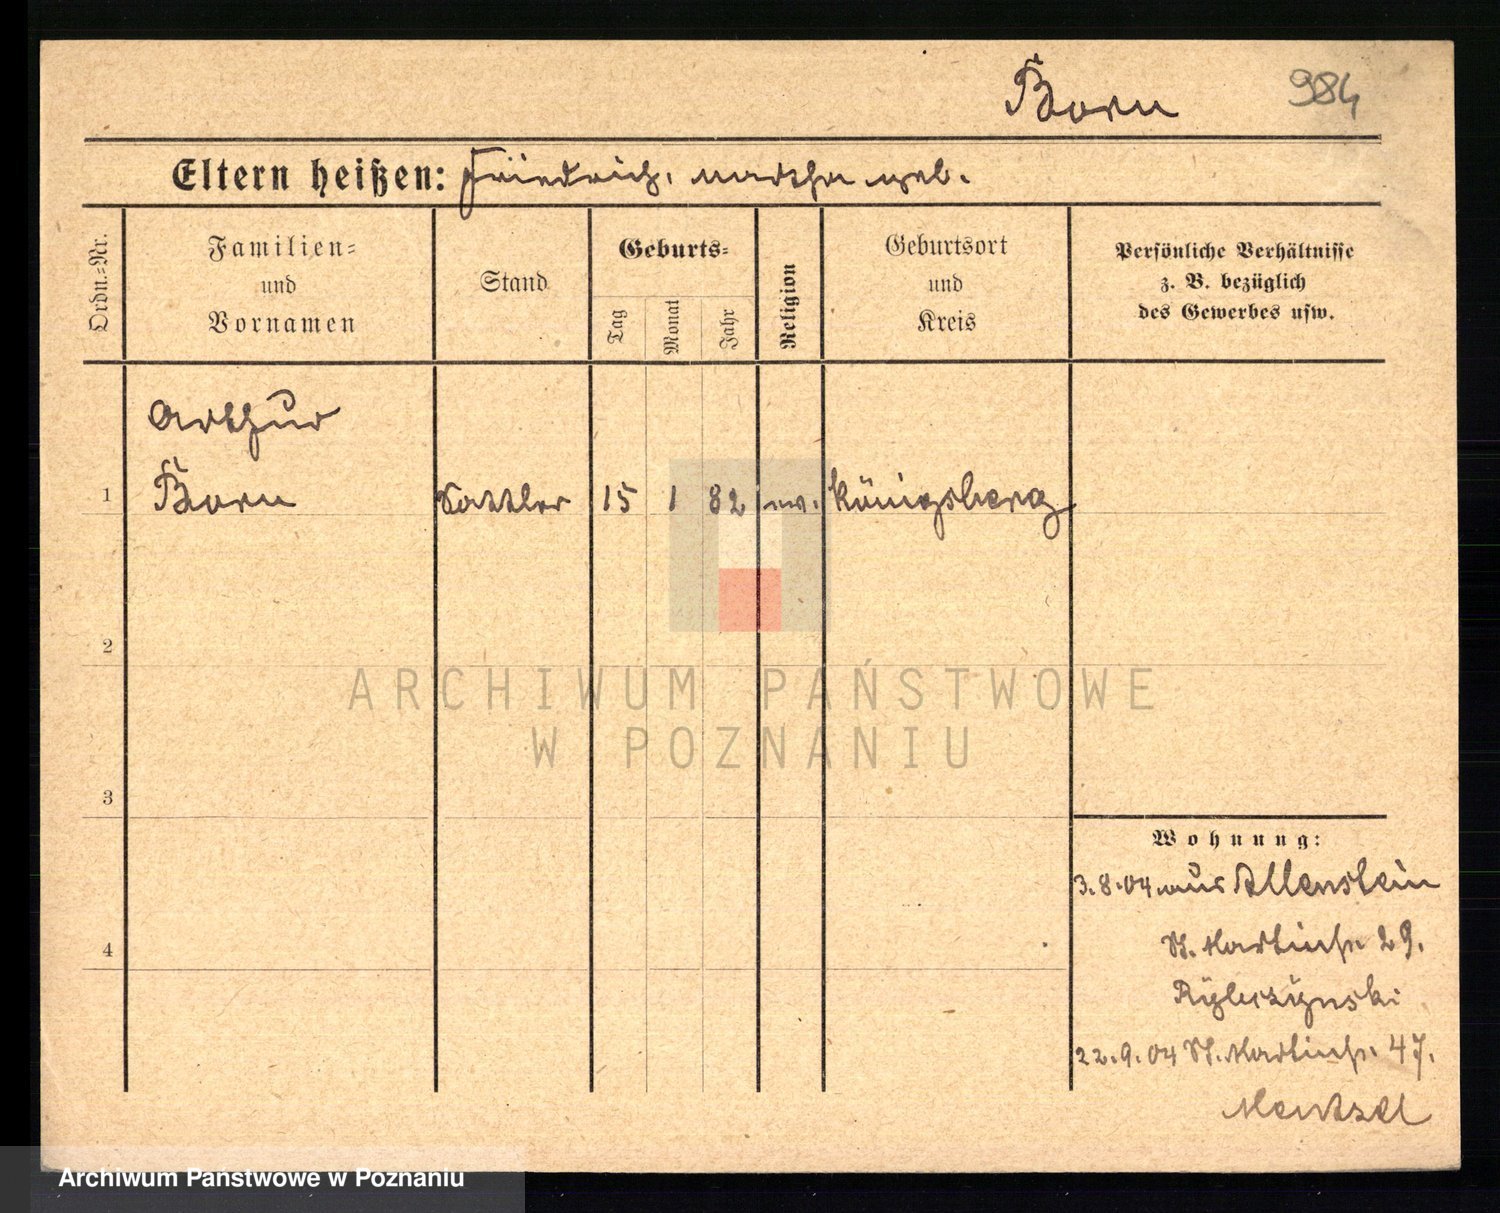 Born 984
Eltern heißen: Friedrich. Martha geb.
Ordn.=Nr.
Familien=
und
Vornamen
Stand
Geburts=
Tag
Monat
Jahr
Religion
Geburtsort
und
Kreis
Persönliche Verhältnisse
z. B. bezüglich
des Gewerbes usw.
Arthur
1 Born Sattler 15 1 82 ev. Königsberg
2
ARCHIWUM PAŃSTWOWE
W POZNANIU
3
Wohnung:
3.8.04 aus Allenstein
4
St. Martinstr. 29.
22.9.04 St. Martinstr. 47.
Mentzel
Archiwum Państwowe w Poznaniu